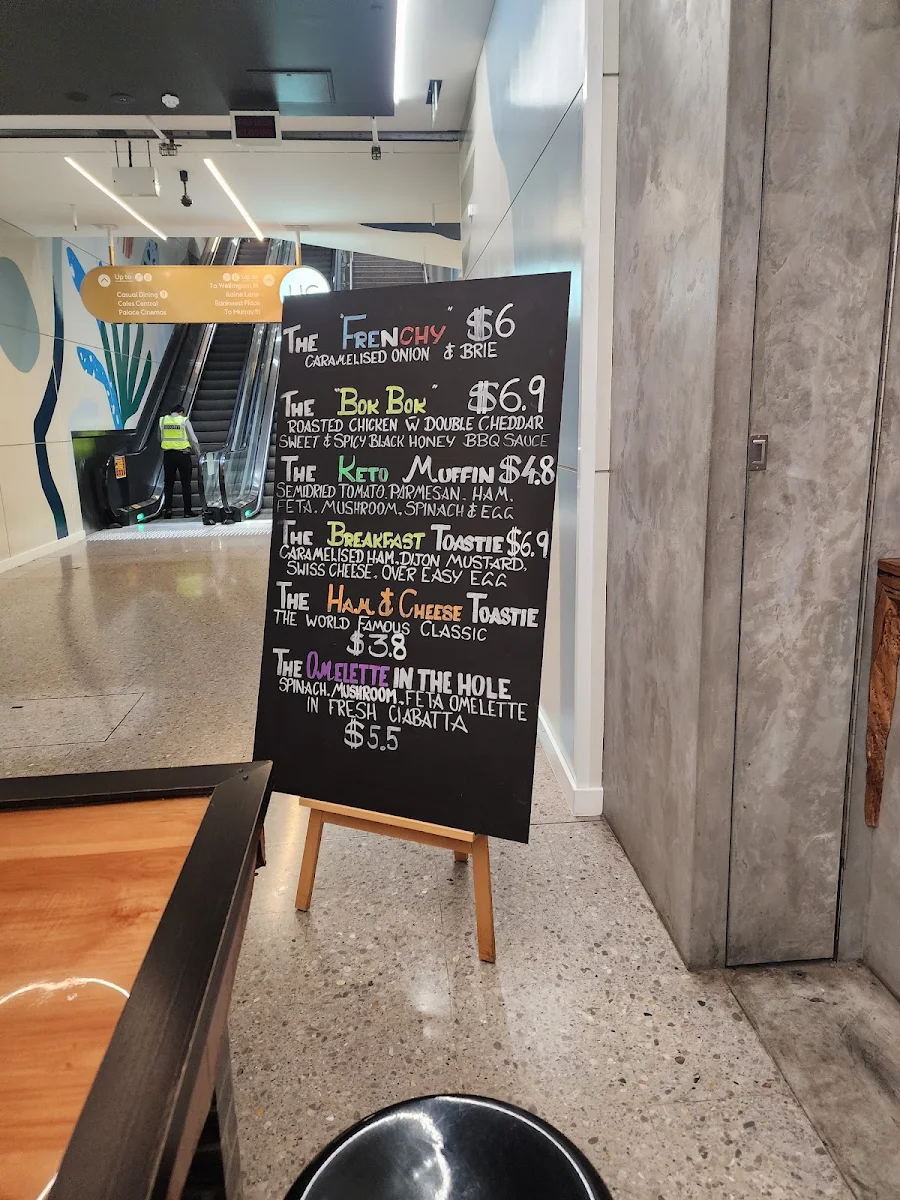 Up to
Casual Dining
Coles Central
Palace Cinemas
Up to
To Wellington St
Raine Lane
Bankwest Place
To Murray St
THE "FRENCHY" $6
CARAMELISED ONION & BRIE
THE "BOK BOK" $6.9
ROASTED CHICKEN W DOUBLE CHEDDAR
SWEET & SPICY BLACK HONEY BBQ SAUCE
THE KETO MUFFIN $4.8
SEMIDRIED TOMATO. PARMESAN. HAM.
FETA. MUSHROOM. SPINACH & EGG
THE BREAKFAST TOASTIE $6.9
CARAMELISED HAM. DIJON MUSTARD.
SWISS CHEESE. OVER EASY EGG
THE HAM & CHEESE TOASTIE
THE WORLD FAMOUS CLASSIC
$3.8
THE OMELETTE IN THE HOLE
SPINACH. MUSHROOM. FETA OMELETTE
IN FRESH CIABATTA
$5.5